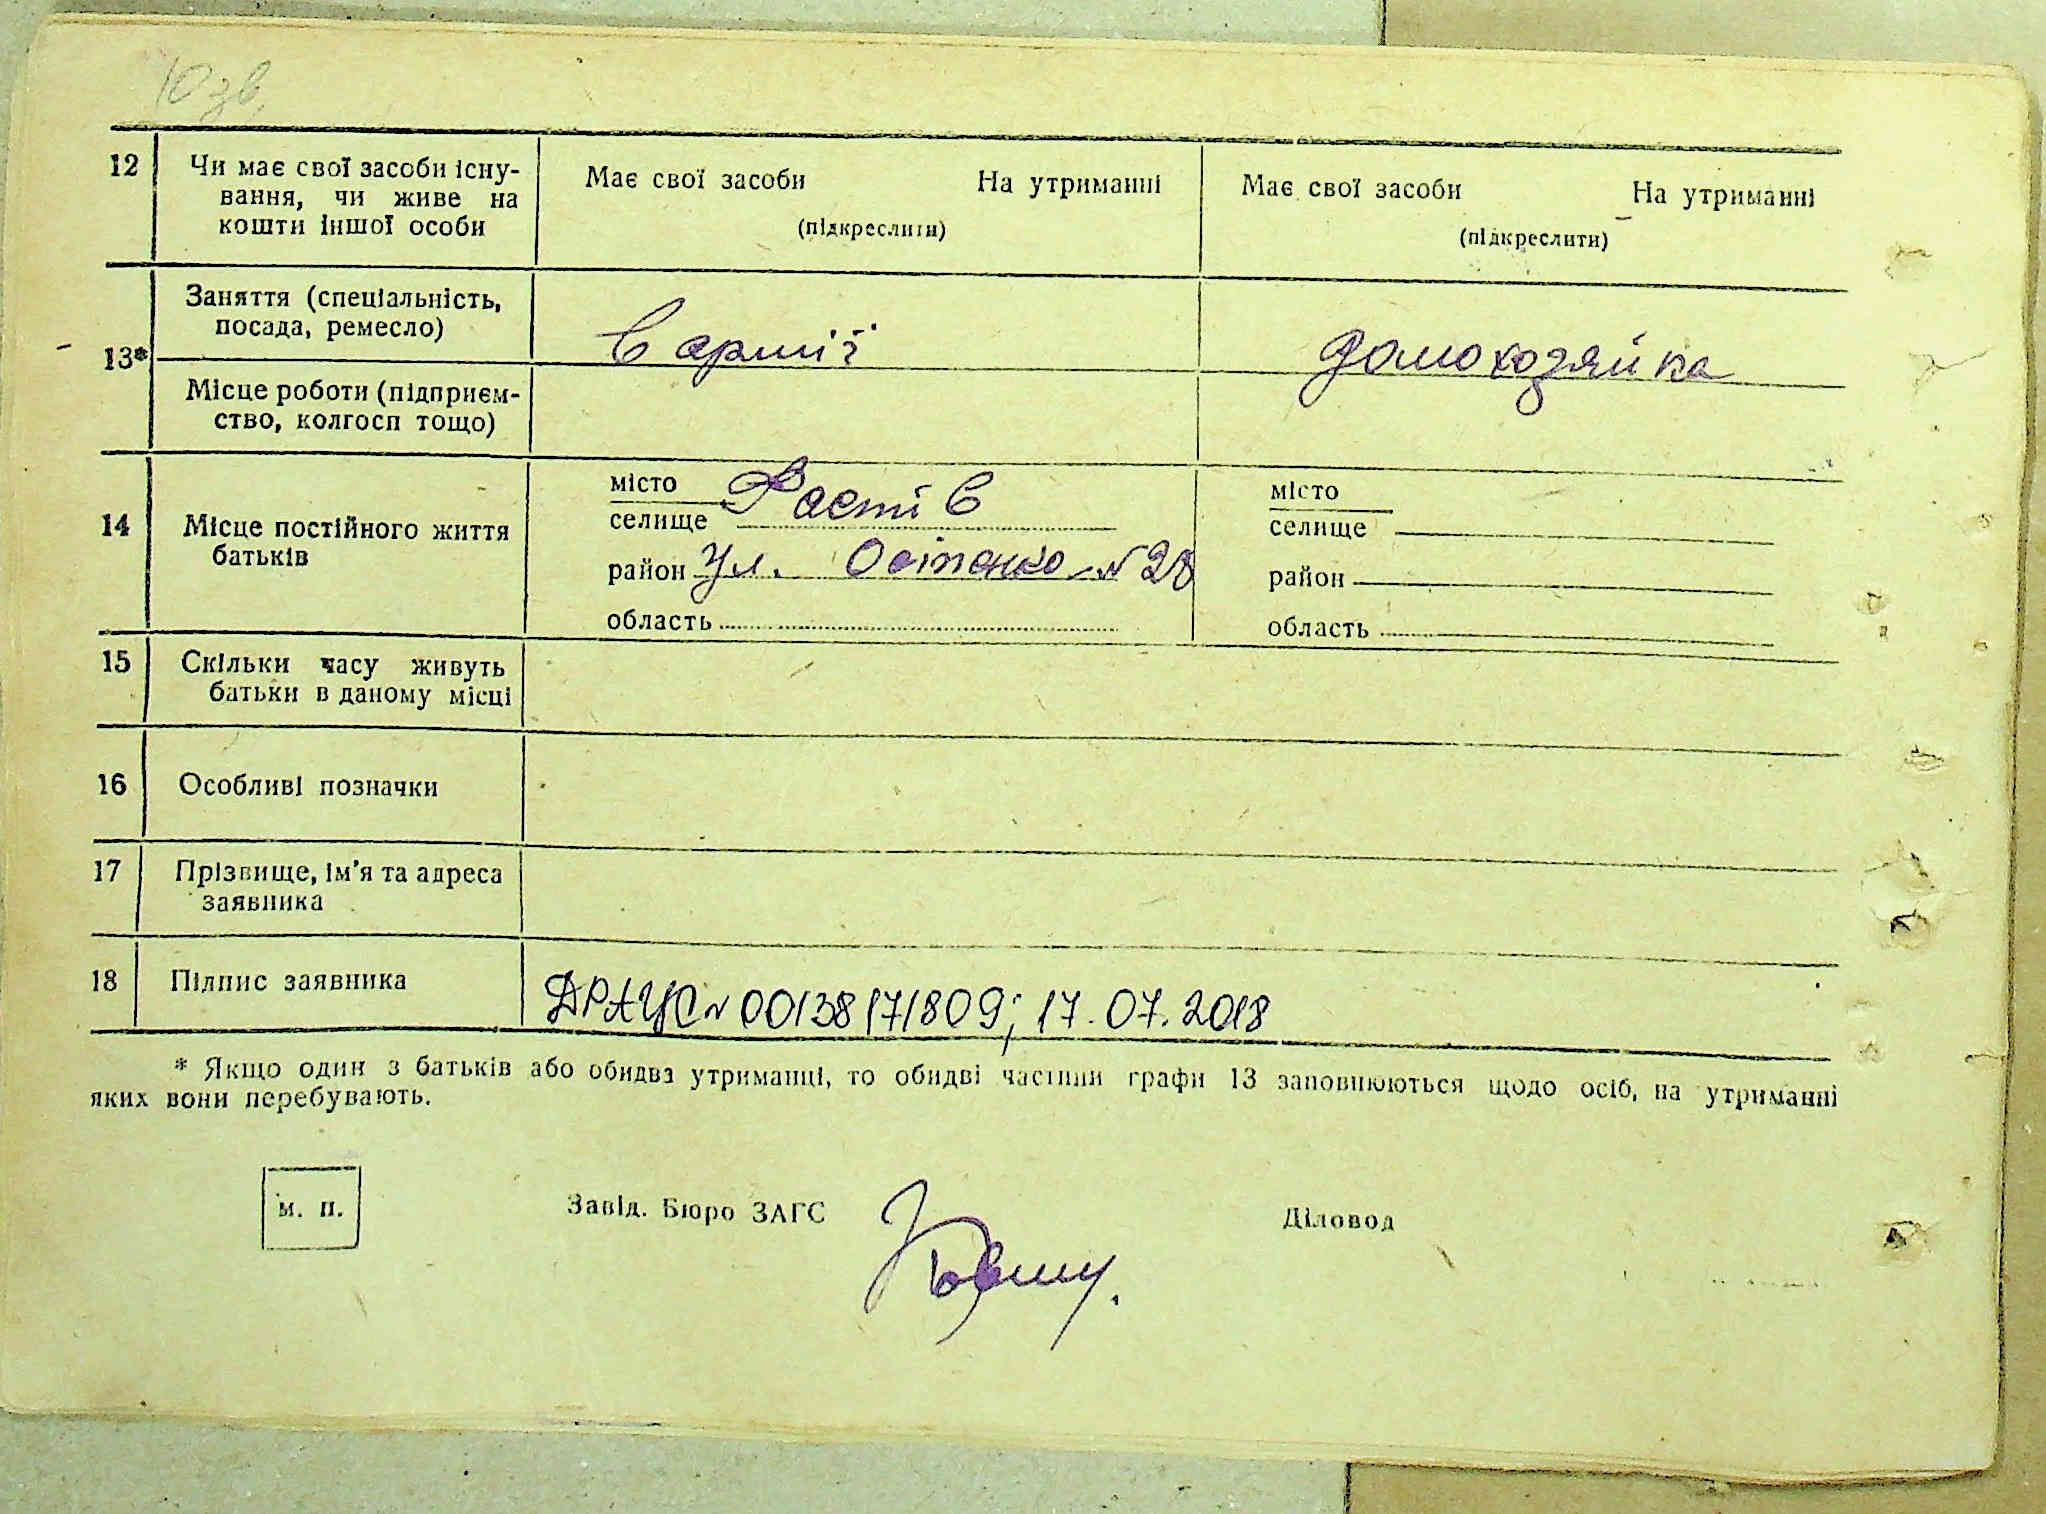 10 зв.
12 Чи має свої засоби існу- Має свої засоби На утриманні Має свої засоби На утриманні
вання, чи живе на
кошти іншої особи (підкреслити) (підкреслити)
Заняття (спеціальність,
посада, ремесло) в армії домохозяйка
13*
Місце роботи (підприєм-
ство, колгосп тощо)
місто Фастів місто
селище селище
14 Місце постійного життя
батьків
район ул. Осіпенко № 28 район
область область
15 Скільки часу живуть
батьки в даному місці
16 Особливі позначки
17 Прізвище, ім'я та адреса
заявника
18 Підпис заявника ДРАЦС № 00138171809; 17.07.2018
* Якщо один з батьків або обидва утриманці, то обидві частини графи 13 заповнюються щодо осіб, на утриманні
яких вони перебувають.
м. п. Завід. Бюро ЗАГС Діловод